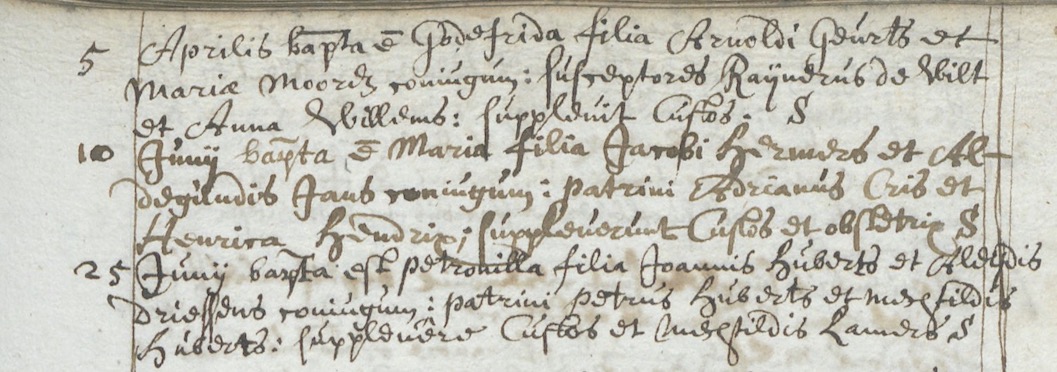 5 Aprilis bapta ē Godefrida filia Arnoldi Geurts et
Mariæ Moords coniugum: susceptores Raijnerus de Wilt
et Anna Willems: supplevit Custos. S
10 Junij bapta ē Maria filia Jacobi Hermers et Al-
degundis Jans coniugum: patrini Adrianus Cris et
Henrica Hendrix; suppleverunt Custos et obstetrix S
25 Junij bapta est petronilla filia Joannis Huberts et Aleidis
driessens coniugum: patrini petrus Huberts et mechtildis
Huberts: supplevêre Custos et mechtildis Lamers S